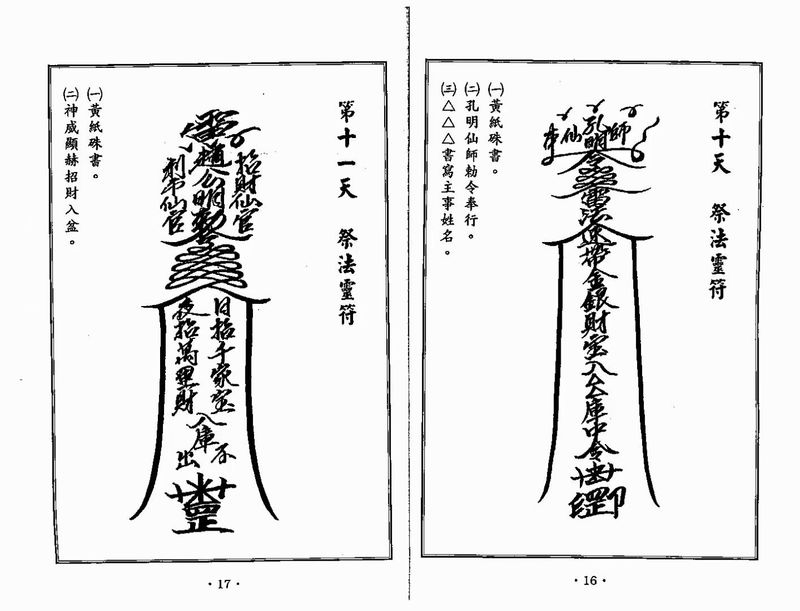 第十天 祭法靈符
㈠黃紙硃書。
㈡孔明仙師勅令奉行。
㈢△△△書寫主事姓名。
師
孔明
仙
令
雷法速帶金銀財宝入
庫中令
罡
印
·16·
第十一天 祭法靈符
㈠黃紙硃書。
㈡神威顯赫招財入盆。
招財仙官
趙公明勅令
利市仙官
日招千家宝
夜招萬里財
入庫不出
罡
·17·